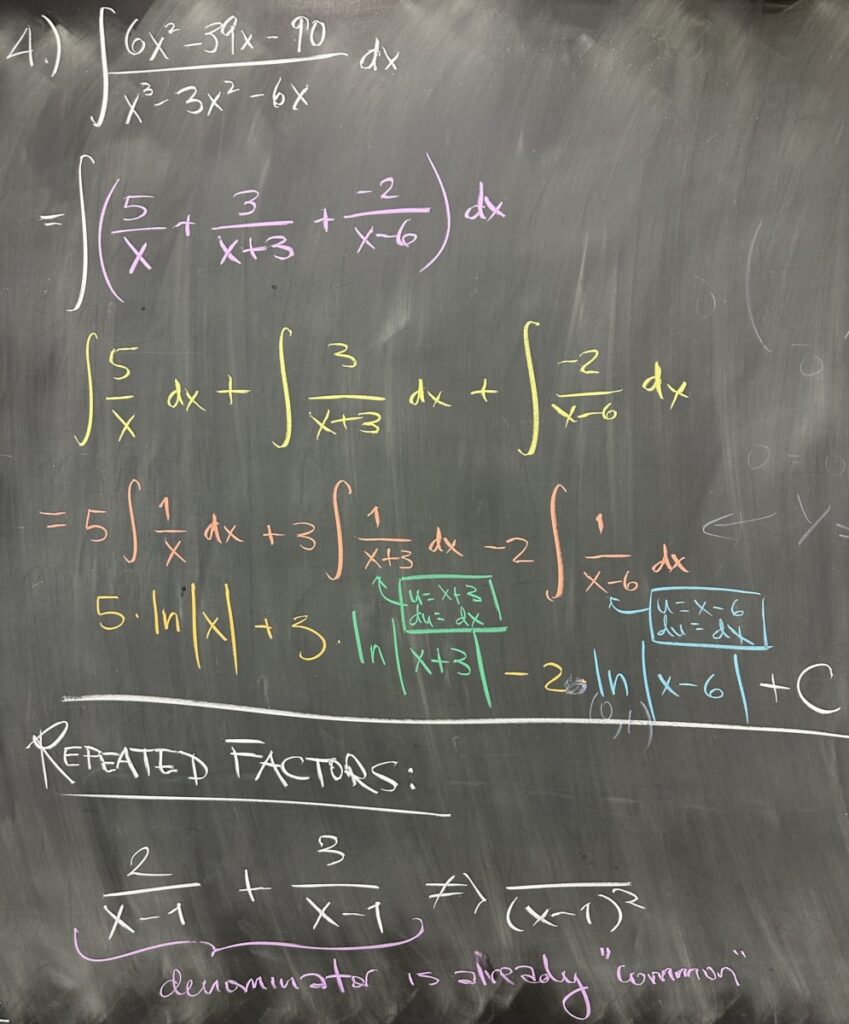 4.) ∫ (6x² - 39x - 90)/(x³ - 3x² - 6x) dx
= ∫ (5/x + 3/(x+3) + -2/(x-6)) dx
∫ 5/x dx + ∫ 3/(x+3) dx + ∫ -2/(x-6) dx
= 5 ∫ 1/x dx + 3 ∫ 1/(x+3) dx - 2 ∫ 1/(x-6) dx
u = x+3
du = dx
u = x-6
du = dx
5·ln|x| + 3·ln|x+3| - 2·ln|x-6| + C
REPEATED FACTORS:
2/(x-1) + 3/(x-1) ≠> /(x-1)²
denominator is already "common"